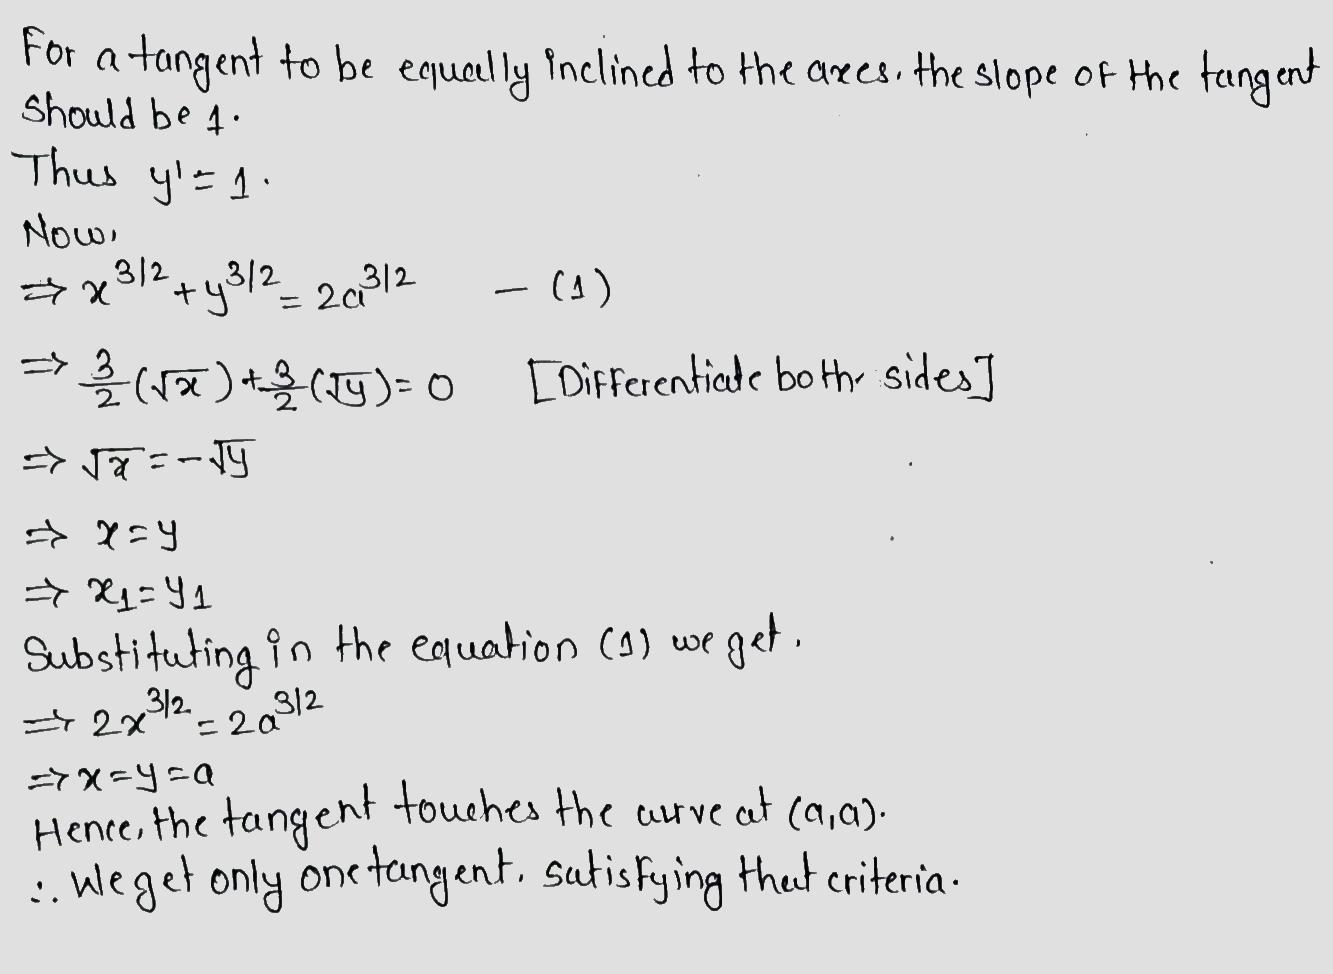 For a tangent to be equally inclined to the axes, the slope of the tangent
should be 1.
Thus y' = 1.
Now,
⇒ x^3/2 + y^3/2 = 2a^3/2 – (1)
⇒ 3/2 (√x) + 3/2 (√y) = 0 [Differentiate both sides]
⇒ √x = -√y
⇒ x = y
⇒ x₁ = y₁
Substituting in the equation (1) we get,
⇒ 2x^3/2 = 2a^3/2
⇒ x = y = a
Hence, the tangent touches the curve at (a,a).
∴ We get only one tangent, satisfying that criteria.